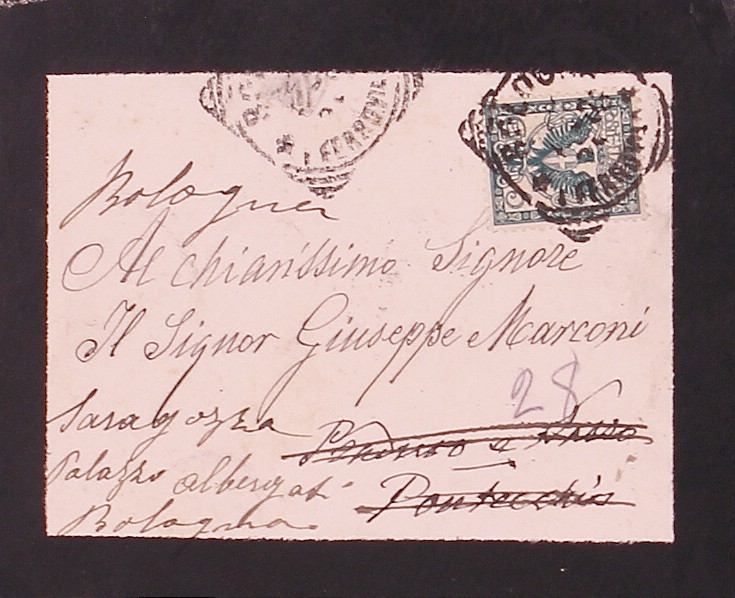 BOLOGNA
FERROVIA
Bologna
Al chiarissimo Signore
Il Signor Giuseppe Marconi
28
Saragozza
Palazzo albergati
Bologna
Pontecchio